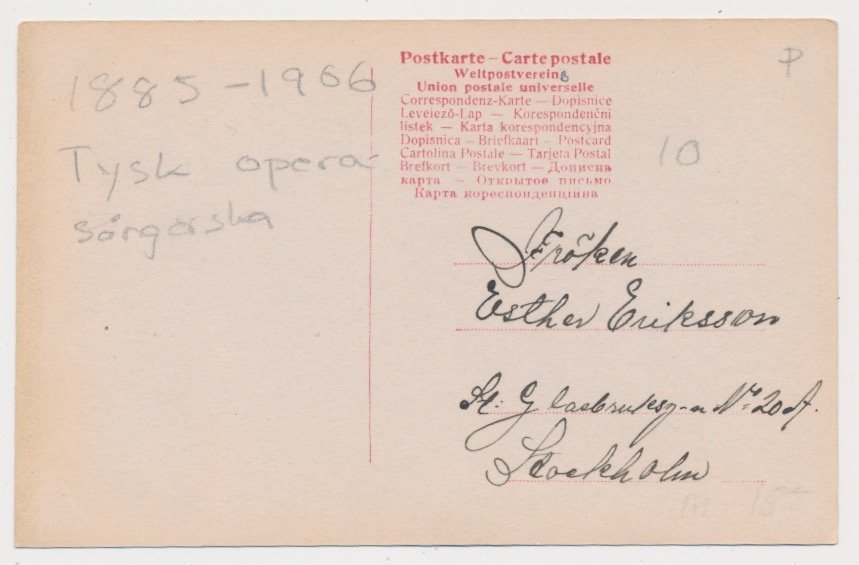 1885-1906
Tysk opera-
sångerska
Postkarte – Carte postale
Weltpostverein
Union postale universelle
Correspondenz-Karte — Dopisnice
Levelező-Lap — Korespondenční
lístek — Karta korespondencyjna
Dopisnica — Briefkaart — Postcard
Cartolina Postale — Tarjeta Postal
Brefkort — Brevkort — Дописна
карта — Открытое письмо
Карта кореспонденційна
P
10
Fröken
Esther Eriksson
St: Glasbruksg-n Nº 20 A.
Stockholm